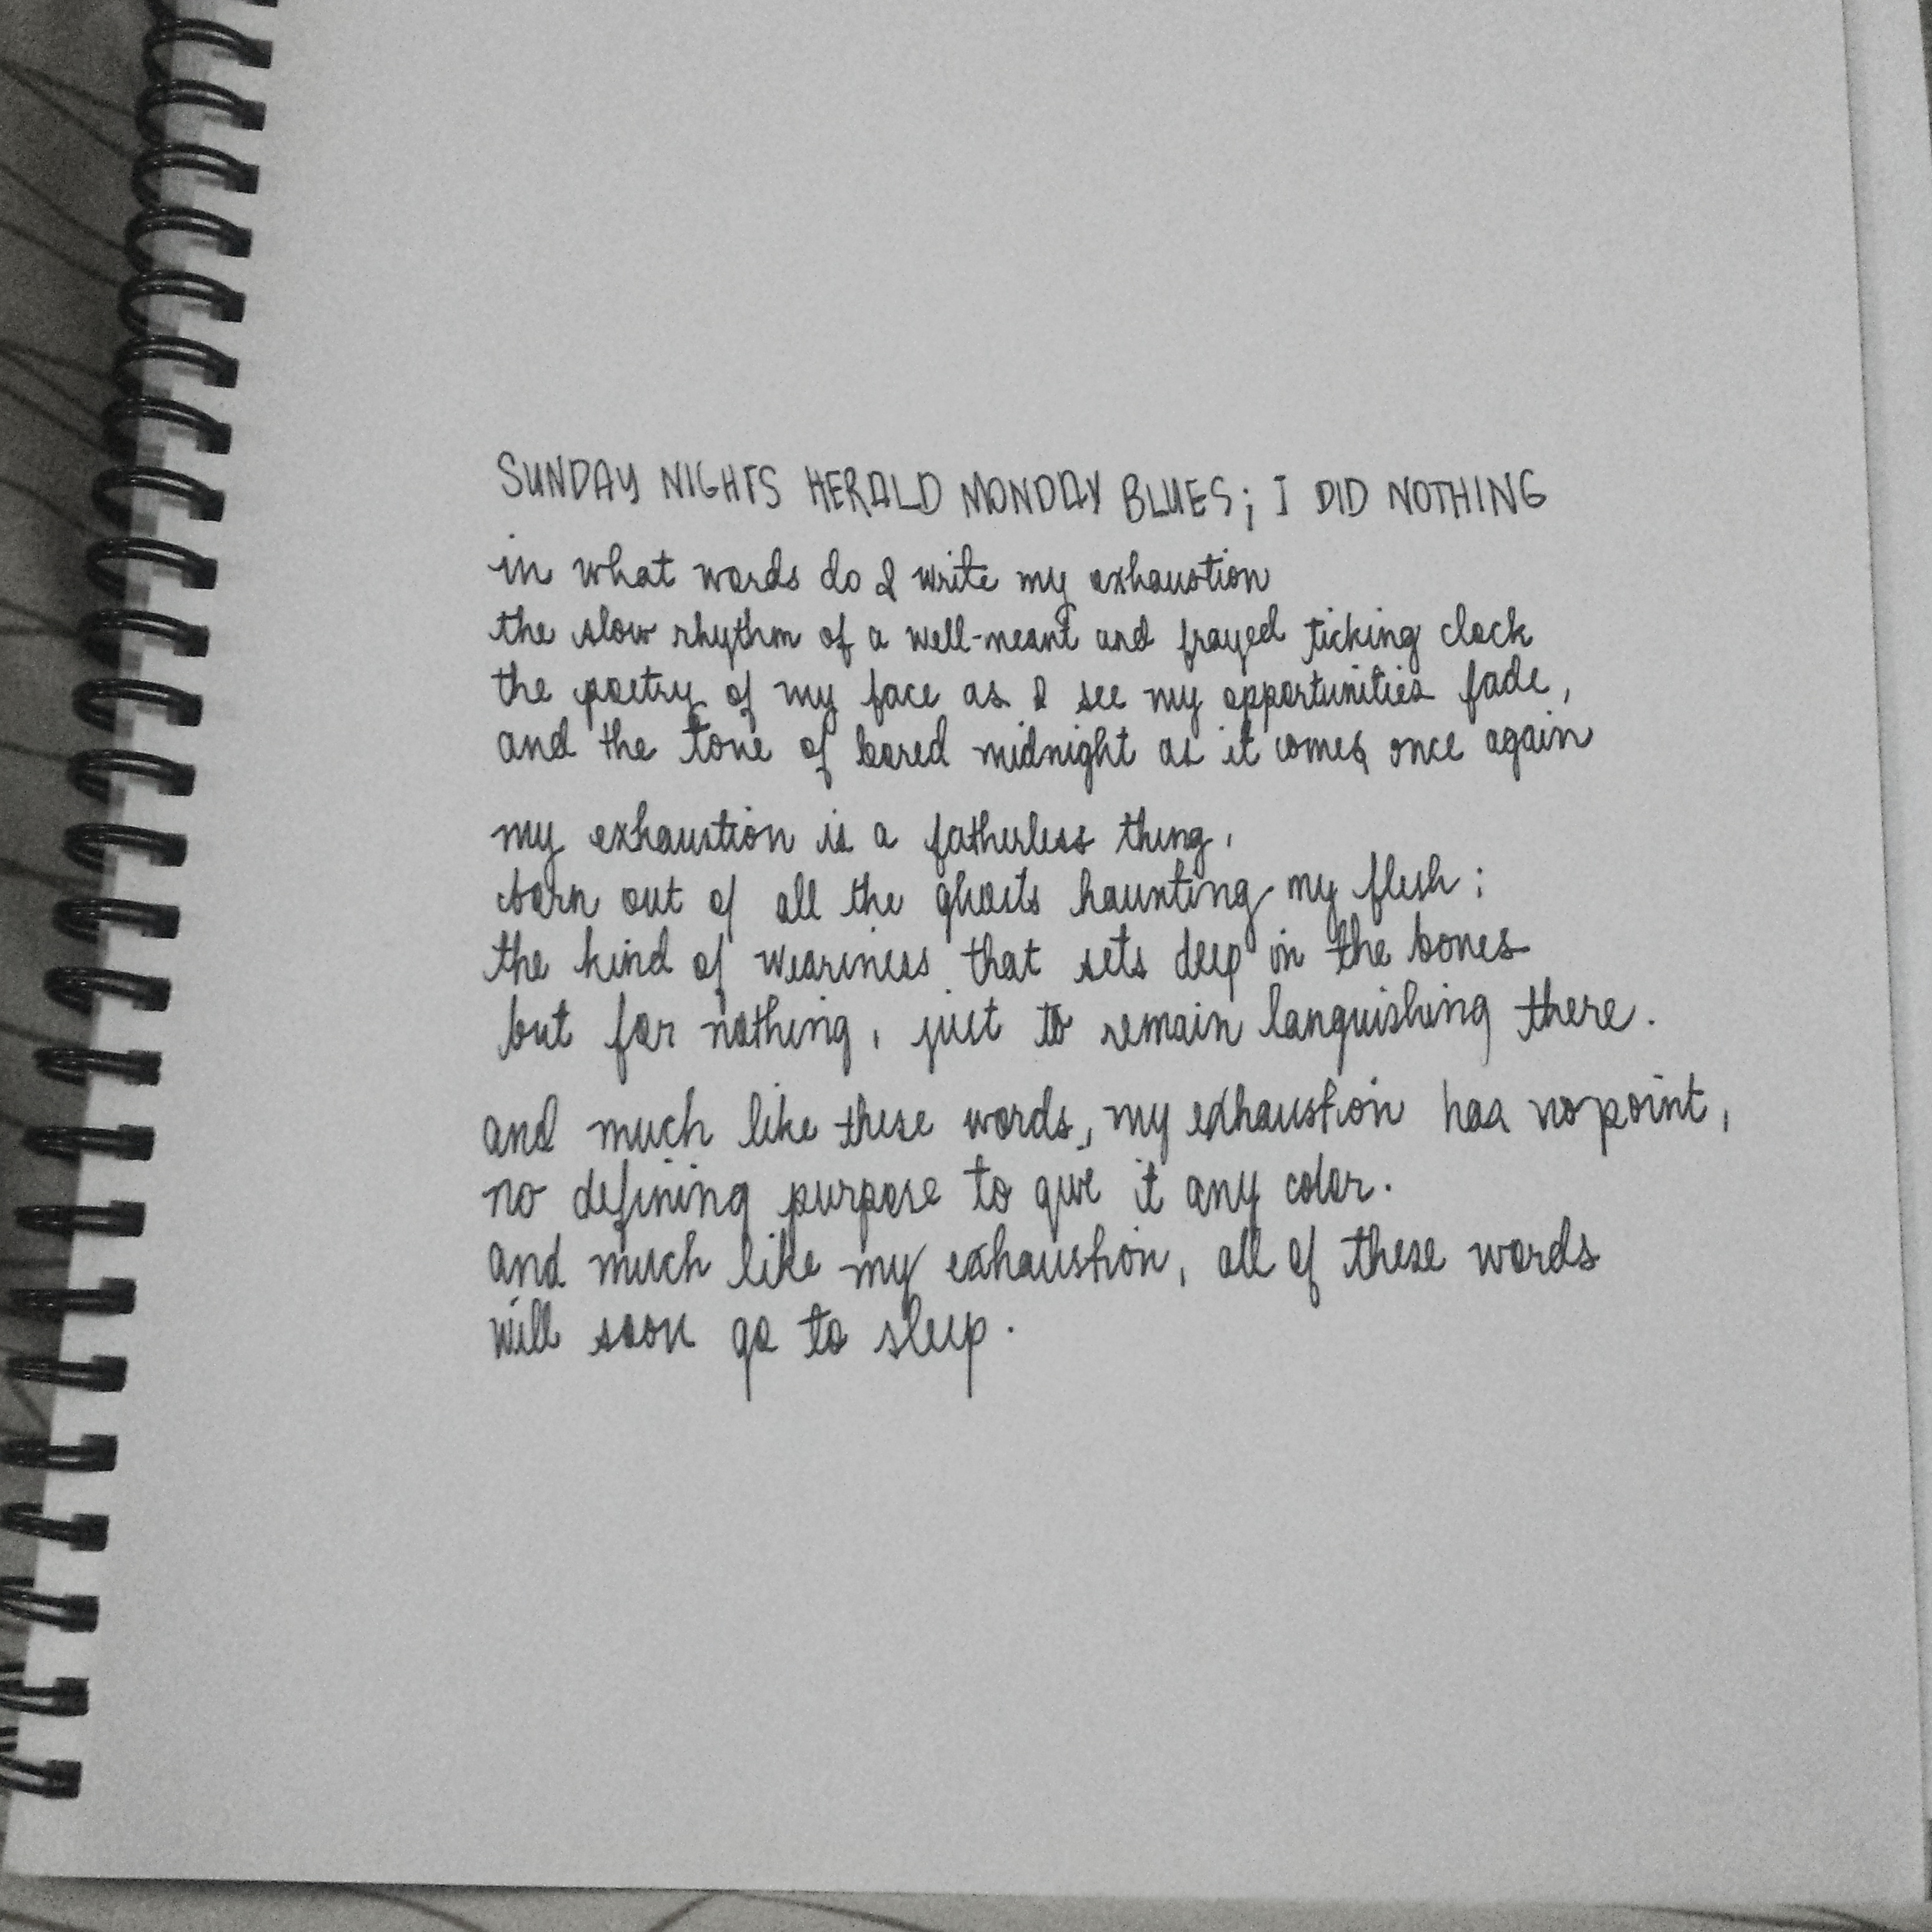 SUNDAY NIGHTS HERALD MONDAY BLUES; I DID NOTHING
in what words do I write my exhaustion
the slow rhythm of a well-meant and frayed ticking clock
the poetry of my face as I see my opportunities fade,
and the tone of bored midnight as it comes once again
my exhaustion is a fatherless thing,
born out of all the ghosts haunting my flesh;
the kind of weariness that sets deep in the bones
but for nothing, just to remain languishing there.
and much like these words, my exhaustion has no point,
no defining purpose to give it any color.
and much like my exhaustion, all of these words
will soon go to sleep.